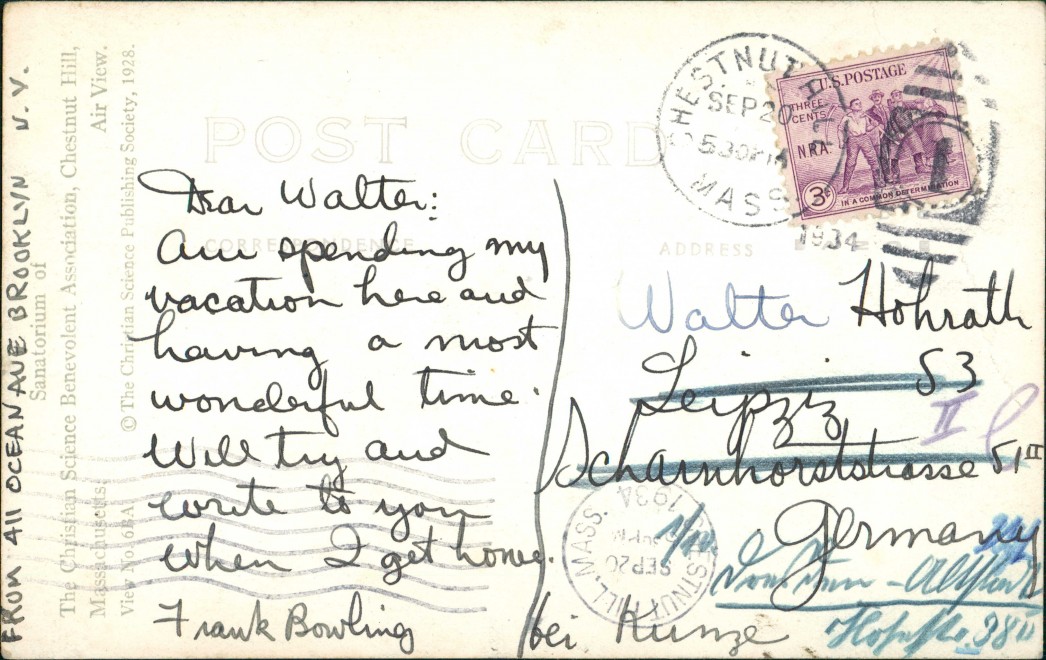 FROM 411 OCEAN AVE BROOKLYN N.Y.
Sanatorium of
The Christian Science Benevolent Association, Chestnut Hill,
Massachusetts. Air View.
View No. 6BA. © The Christian Science Publishing Society, 1928.
POST CARD
CORRESPONDENCE
ADDRESS
CHESTNUT HILL
SEP 20
5 30 PM
MASS.
1934
U.S. POSTAGE
THREE
CENTS
N.R.A.
3¢
IN A COMMON DETERMINATION
Dear Walter:
Am spending my
vacation here and
having a most
wonderful time.
Will try and
write to you
when I get home.
Frank Bowling
Walter Hohrath
Leipzig S3
II
Scharnhorststrasse 51
Germany
bei Kunze
CHESTNUT HILL, MASS.
SEP 20
1934
Dresden - Altstadt
38